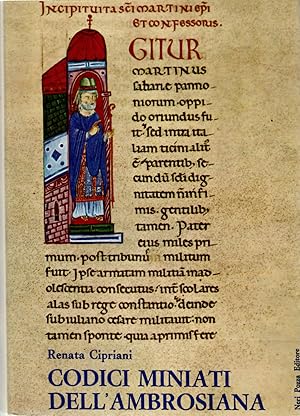 Incipit uita sc̄i martini ep̄i
et confessoris.
IGITUR
MARTINUS
sabarie panno-
niorum oppi-
do oriundus fu-
it sed intra ita-
liam ticini alit
parentib, se-
cundū scl̄i di-
gnitatem
mis. gentilib,
tamen. Pater
eius miles pri-
mum. post tribunus militum
fuit. Ipse armatam militiā in ado-
lescentia consecutus. inter scolares
alas sub rege constantio. deinde
sub iuliano cesare militauit. non
tamen sponte. quia a primis fere
Renata Cipriani
CODICI MINIATI
DELL'AMBROSIANA
Neri Pozza Editore